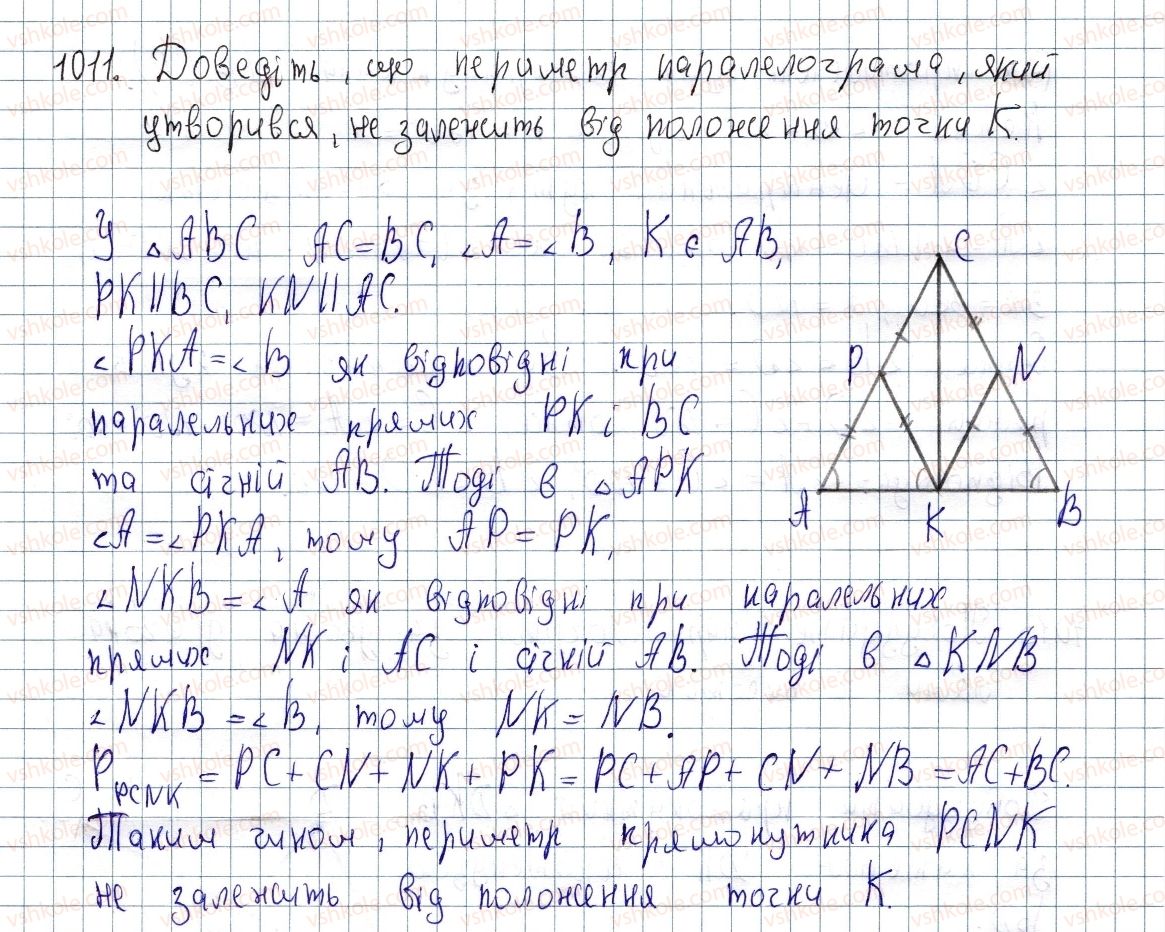 1011. Доведіть, що периметр паралелограма, який
утворився, не залежить від положення точки K.
У △ABC AC=BC, ∠A=∠B, K є AB,
PK||BC, KN||AC.
∠PKA=∠B як відповідні при
паралельних прямих PK і BC
та січній AB. Тоді в △APK
∠A=∠PKA, тому AP=PK,
∠NKB=∠A як відповідні при паралельних
прямих NK і AC і січній AB. Тоді в △KNB
∠NKB=∠B, тому NK=NB.
P PCNK = PC+CN+NK+PK=PC+AP+CN+NB=AC+BC.
Таким чином, периметр прямокутника PCNK
не залежить від положення точки K.
C
P N
A K B